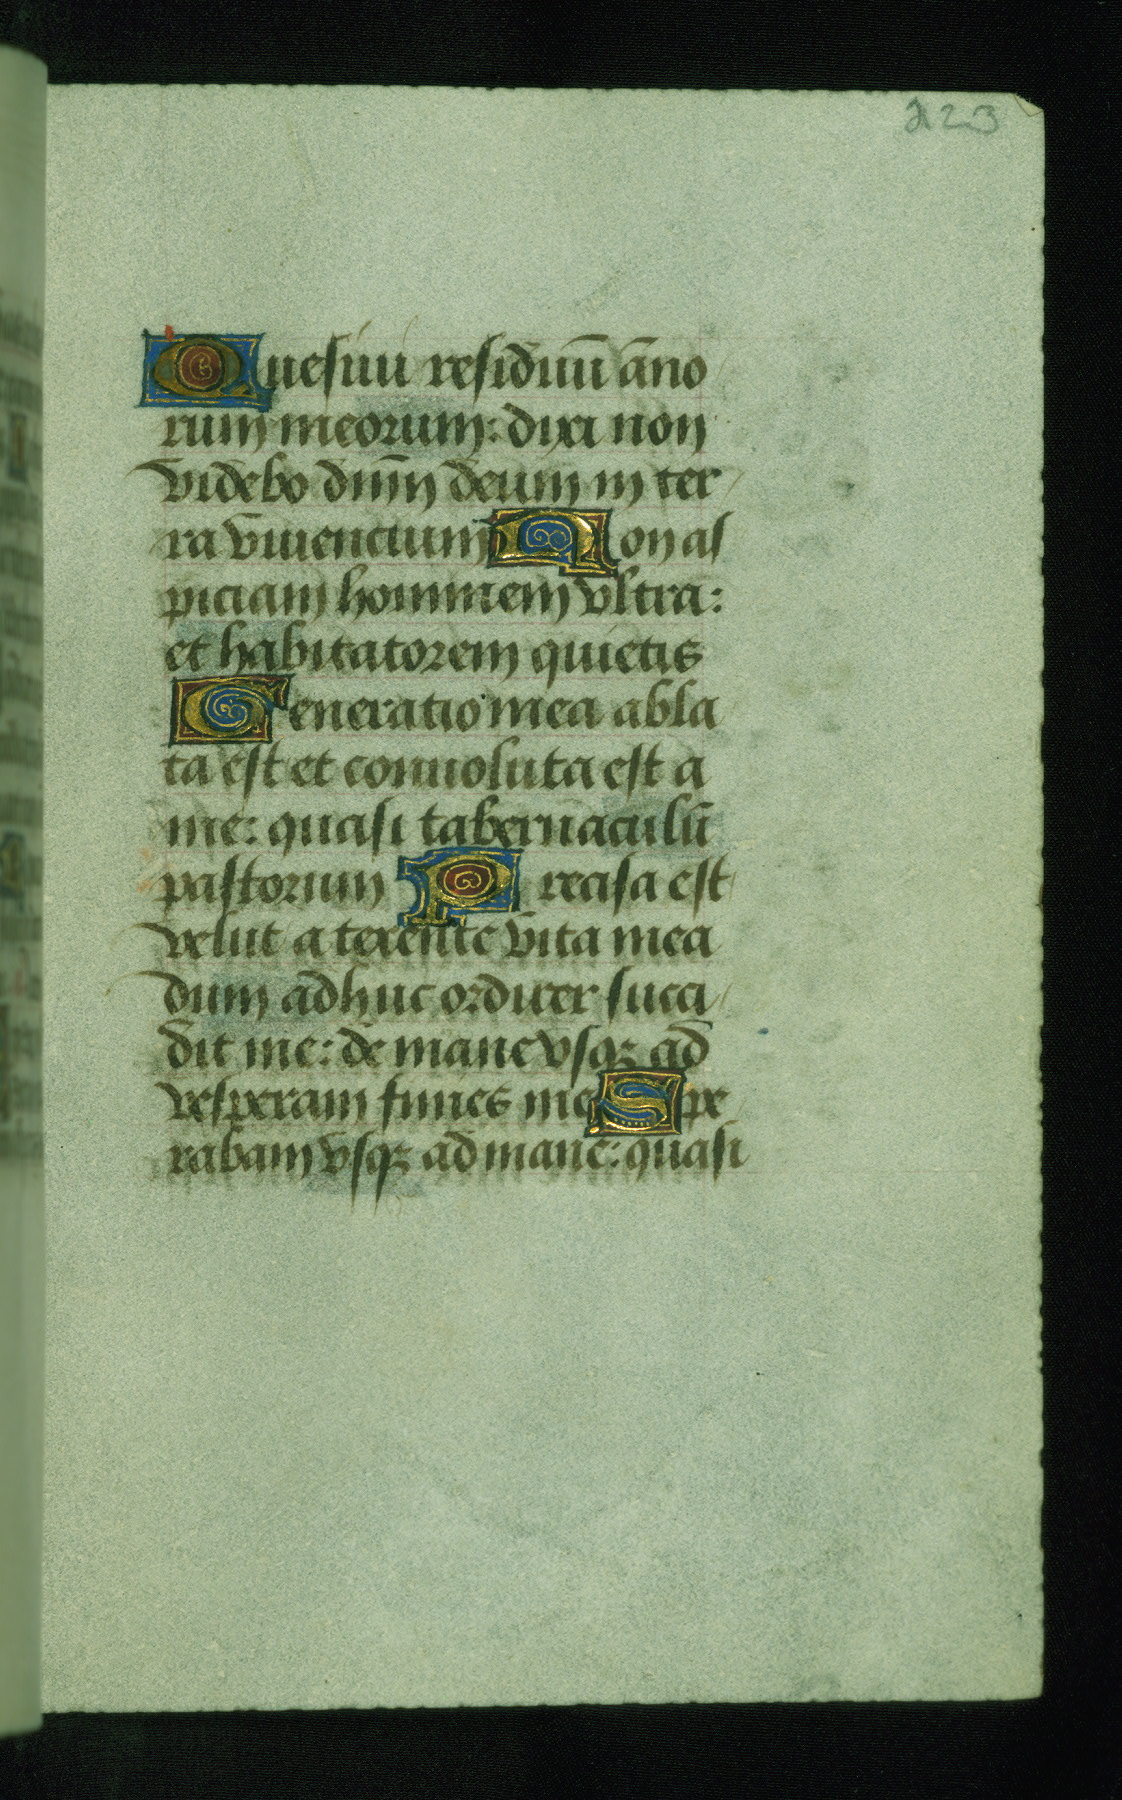 223
Quesiui residuū āno
rum meorum: dixi non
videbo dūm deum in ter
ra viuentium Non as
piciam hominem vltra:
et habitatorem quietis
Generatio mea abla
ta est et conuoluta est a
me: quasi tabernaculū
pastorum Precisa est
velut a texente vita mea
dum adhuc ordirer succi
dit me: de mane vsqꝫ ad
vesperam finies me Spe
rabam vsqꝫ ad mane: quasi